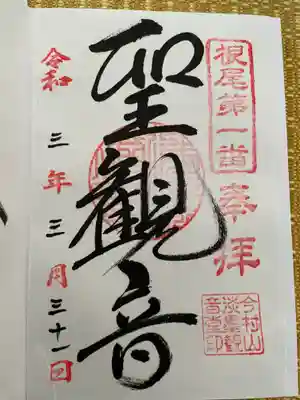 根尾第一番
奉拝
聖觀音
令和三年三月三十一日
今村山
淡墨観
音堂印